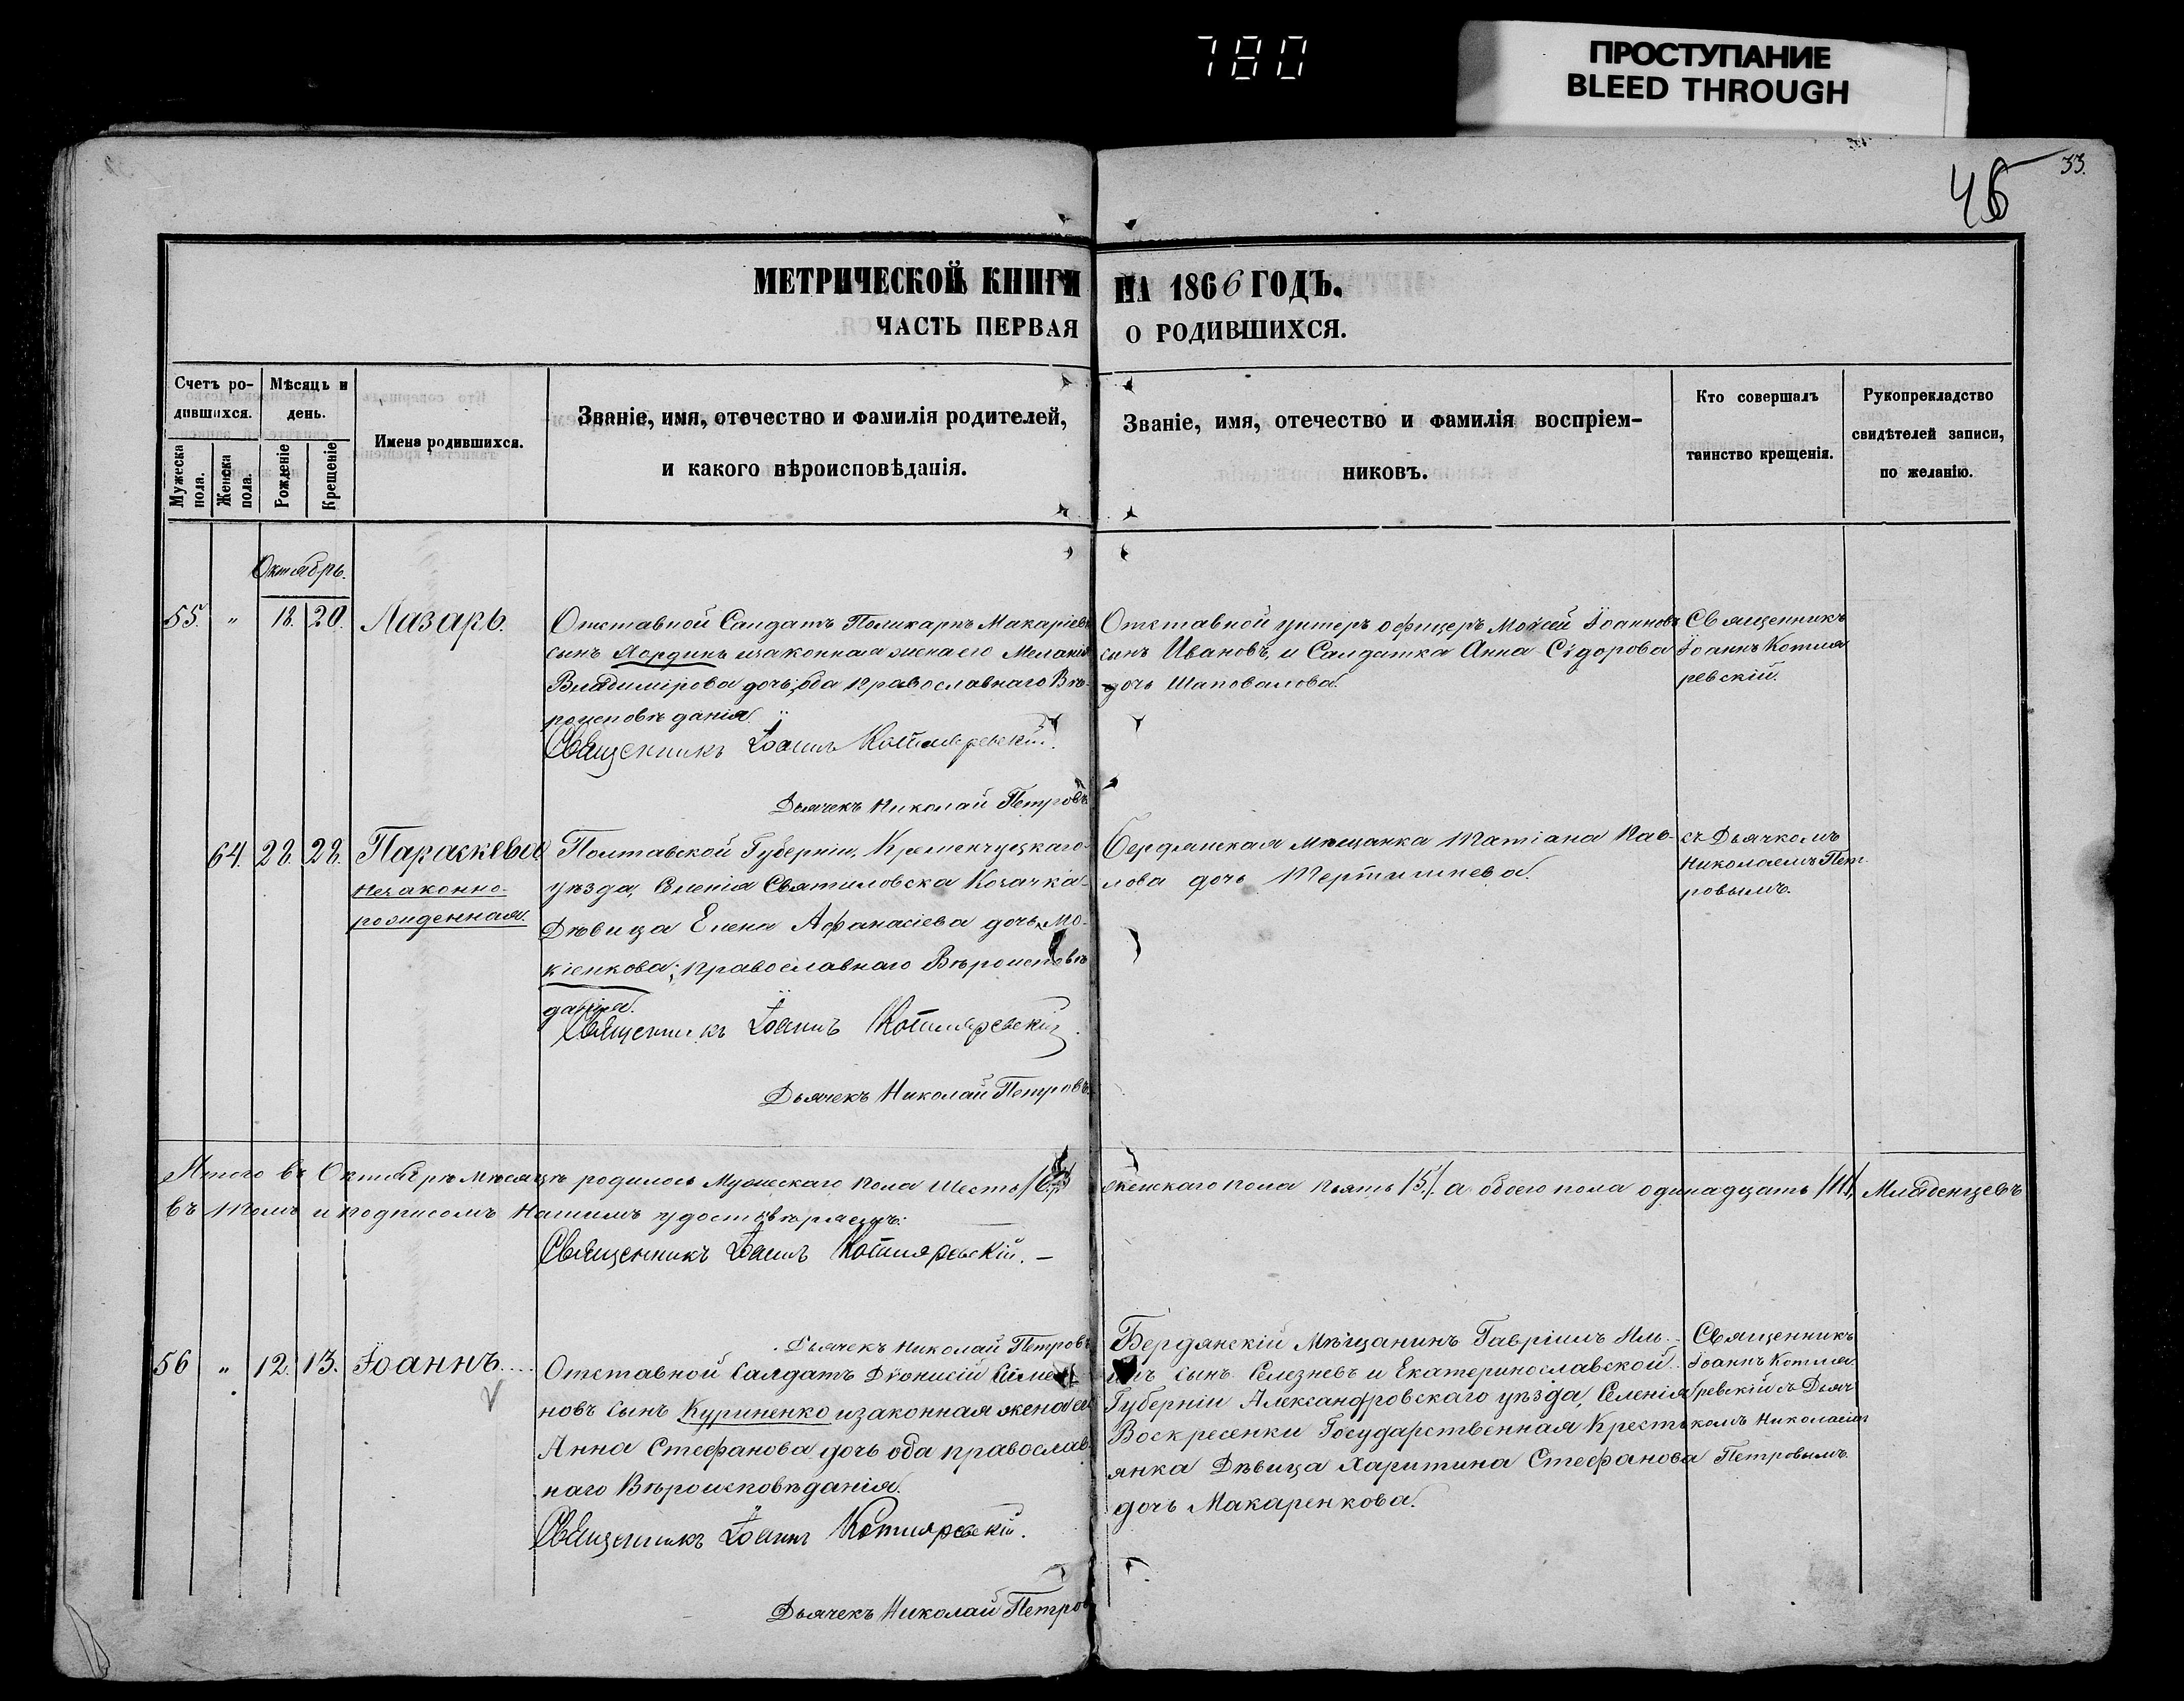 780
ПРОСТУПАНИЕ
BLEED THROUGH
46
33.
МЕТРИЧЕСКОЙ КНИГИ НА 1866 ГОДЪ.
ЧАСТЬ ПЕРВАЯ О РОДИВШИХСЯ.
Счетъ родившихся.
Мѣсяцъ и день.
Имена родившихся.
Званіе, имя, отечество и фамилія родителей,
и какого вѣроисповѣданія.
Званіе, имя, отечество и фамилія воспріем-
никовъ.
Кто совершалъ
таинство крещенія.
Рукоприкладство
свидѣтелей записи,
по желанію.
Мужеска пола.
Женска пола.
Рожденіе
Крещеніе
Октябрь.
55. " 18. 20. Лазарь.
Отставной Салдатъ Поликарпъ Макаріевъ
сынъ изаконная жена его Меланія
Владимірова дочь; оба Православнаго Вѣ-
роисповѣданія.
Священникъ Іоаннъ Котляревскій.
Дьячекъ Николай Петровъ
Отставной унтеръ офицеръ Моѵсей Іоанновъ
сынъ Ивановъ, и Салдатка Анна Сідорова
дочь Шаповалова.
Священникъ
Іоаннъ Котля
ревскій.
64. 28. 28. Параскева
Незаконно-
рожденная.
Полтавской Губерніи, Кременчуцкаго
уѣзда, Селенія Святиловска Козачка
Дѣвица Елена Афанасіева дочь Мо-
кіенкова; Православнаго Вѣроисповѣ
данія.
Священникъ Іоаннъ Котляревскій
Дьячекъ Николай Петровъ.
Бердянская Мѣщанка Татіана Пав-
лова дочь
съ Дьячкомъ
Николаемъ Пет-
ровымъ.
Итого въ Октябрѣ мѣсяцѣ родилось Мужескаго пола Шесть /6/ женскаго пола пять /5/. а обоего пола одинадцать /11/, Младенцевъ
въ томъ и подписомъ Нашимъ удостовѣряемъ:
Священникъ Іоаннъ Котляревскій. –
Дьячекъ Николай Петровъ
56 " 12. 13. Іоаннъ....
Отставной Салдатъ Діонисій Сімео
новъ сынъ Куриненко изаконная жена его
Анна Стефанова дочь оба православ
наго Вѣроисповѣданія.
Священникъ Іоаннъ Котляревскій.
Дьячекъ Николай Петров
Бердянскій Мѣщанинъ Гавріилъ Иль-
инъ сынъ Селезневъ и Екатеринославской
Губерніи Александровскаго уѣзда, Селенія
Воскресенки Государственная Кресть
янка Дѣвица Харитина Стефанова
дочь Макаренкова.
Священникъ
Іоаннъ Котля
ревскій съ Дьяч
комъ Николаемъ
Петровымъ.